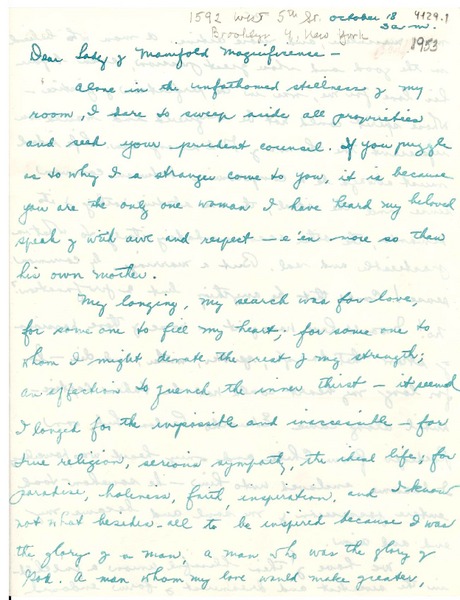 1592 West 5th St. october 18 4129.1
Brooklyn 4, New York 3 a.m.
1953
Dear Lady of Manifold Magnificence –
Alone in the unfathomed stillness of my
room, I dare to sweep aside all proprieties
and seek your prudent counsel. If you puzzle
as to why I a stranger come to you, it is because
you are the only one woman I have heard my beloved
speak of with awe and respect – e'en more so than
his own mother.
My longing, my search was for love,
for some one to fill my heart; for some one to
whom I might devote the rest of my strength;
an affection to quench the inner thirst – it seemed
I longed for the impossible and inaccessible – for
true religion, serious sympathy, the ideal life; for
paradise, holiness, faith, inspiration, and I know
not what besides – all to be inspired because I was
the glory of a man, a man who was the glory of
God. A man whom my love would make greater,